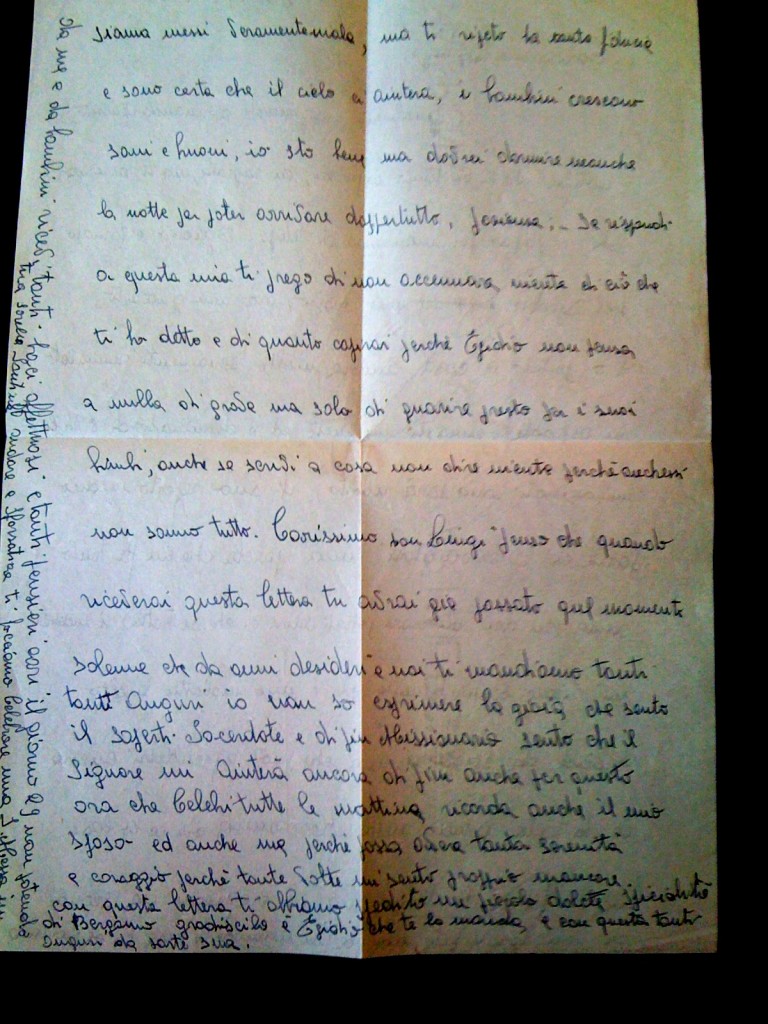 siamo messi veramente male, ma ti ripeto ho tanta fiducia
e sono certa che il cielo ci aiuterà, i bambini crescono
sani e buoni, io sto bene ma dovrei dormire neanche
la notte per poter arrivare dappertutto, pazienza; - Se rispondi
a questa mia ti prego di non accennare niente di ciò che
ti ho detto e di quanto capirai perchè Egidio non pensa
a nulla di grave ma solo di guarire presto per i suoi
bimbi, anche se scrivi a casa non dire niente perchè anchessi
non sanno tutto. Carissimo don Luigi penso che quando
riceverai questa lettera tu avrai già passato quel momento
solenne che da anni desideri e noi ti mandiamo tanti
tanti Auguri io non so esprimere la gioia che sento
il saperti Sacerdote e di più Missionario sento che il
Signore mi Aiuterà ancora di più anche per questo
ora che Celebri tutte le mattina, ricorda anche il mio
sposo ed anche me perchè possa avere tanta serenità
e coraggio perchè tante volte mi sento proprio mancare
con questa lettera ti abbiamo spedito un piccolo dolce, specialità
di Bergamo gradiscilo è Egidio che te lo manda, e con questo tanti
auguri da parte sua.
Da me e da bambini ricevi tanti baci affettuosi e tanti pensieri cari il giorno 29 non potendo
tua sorella andare a ti facciamo Celebrare una S. Messa